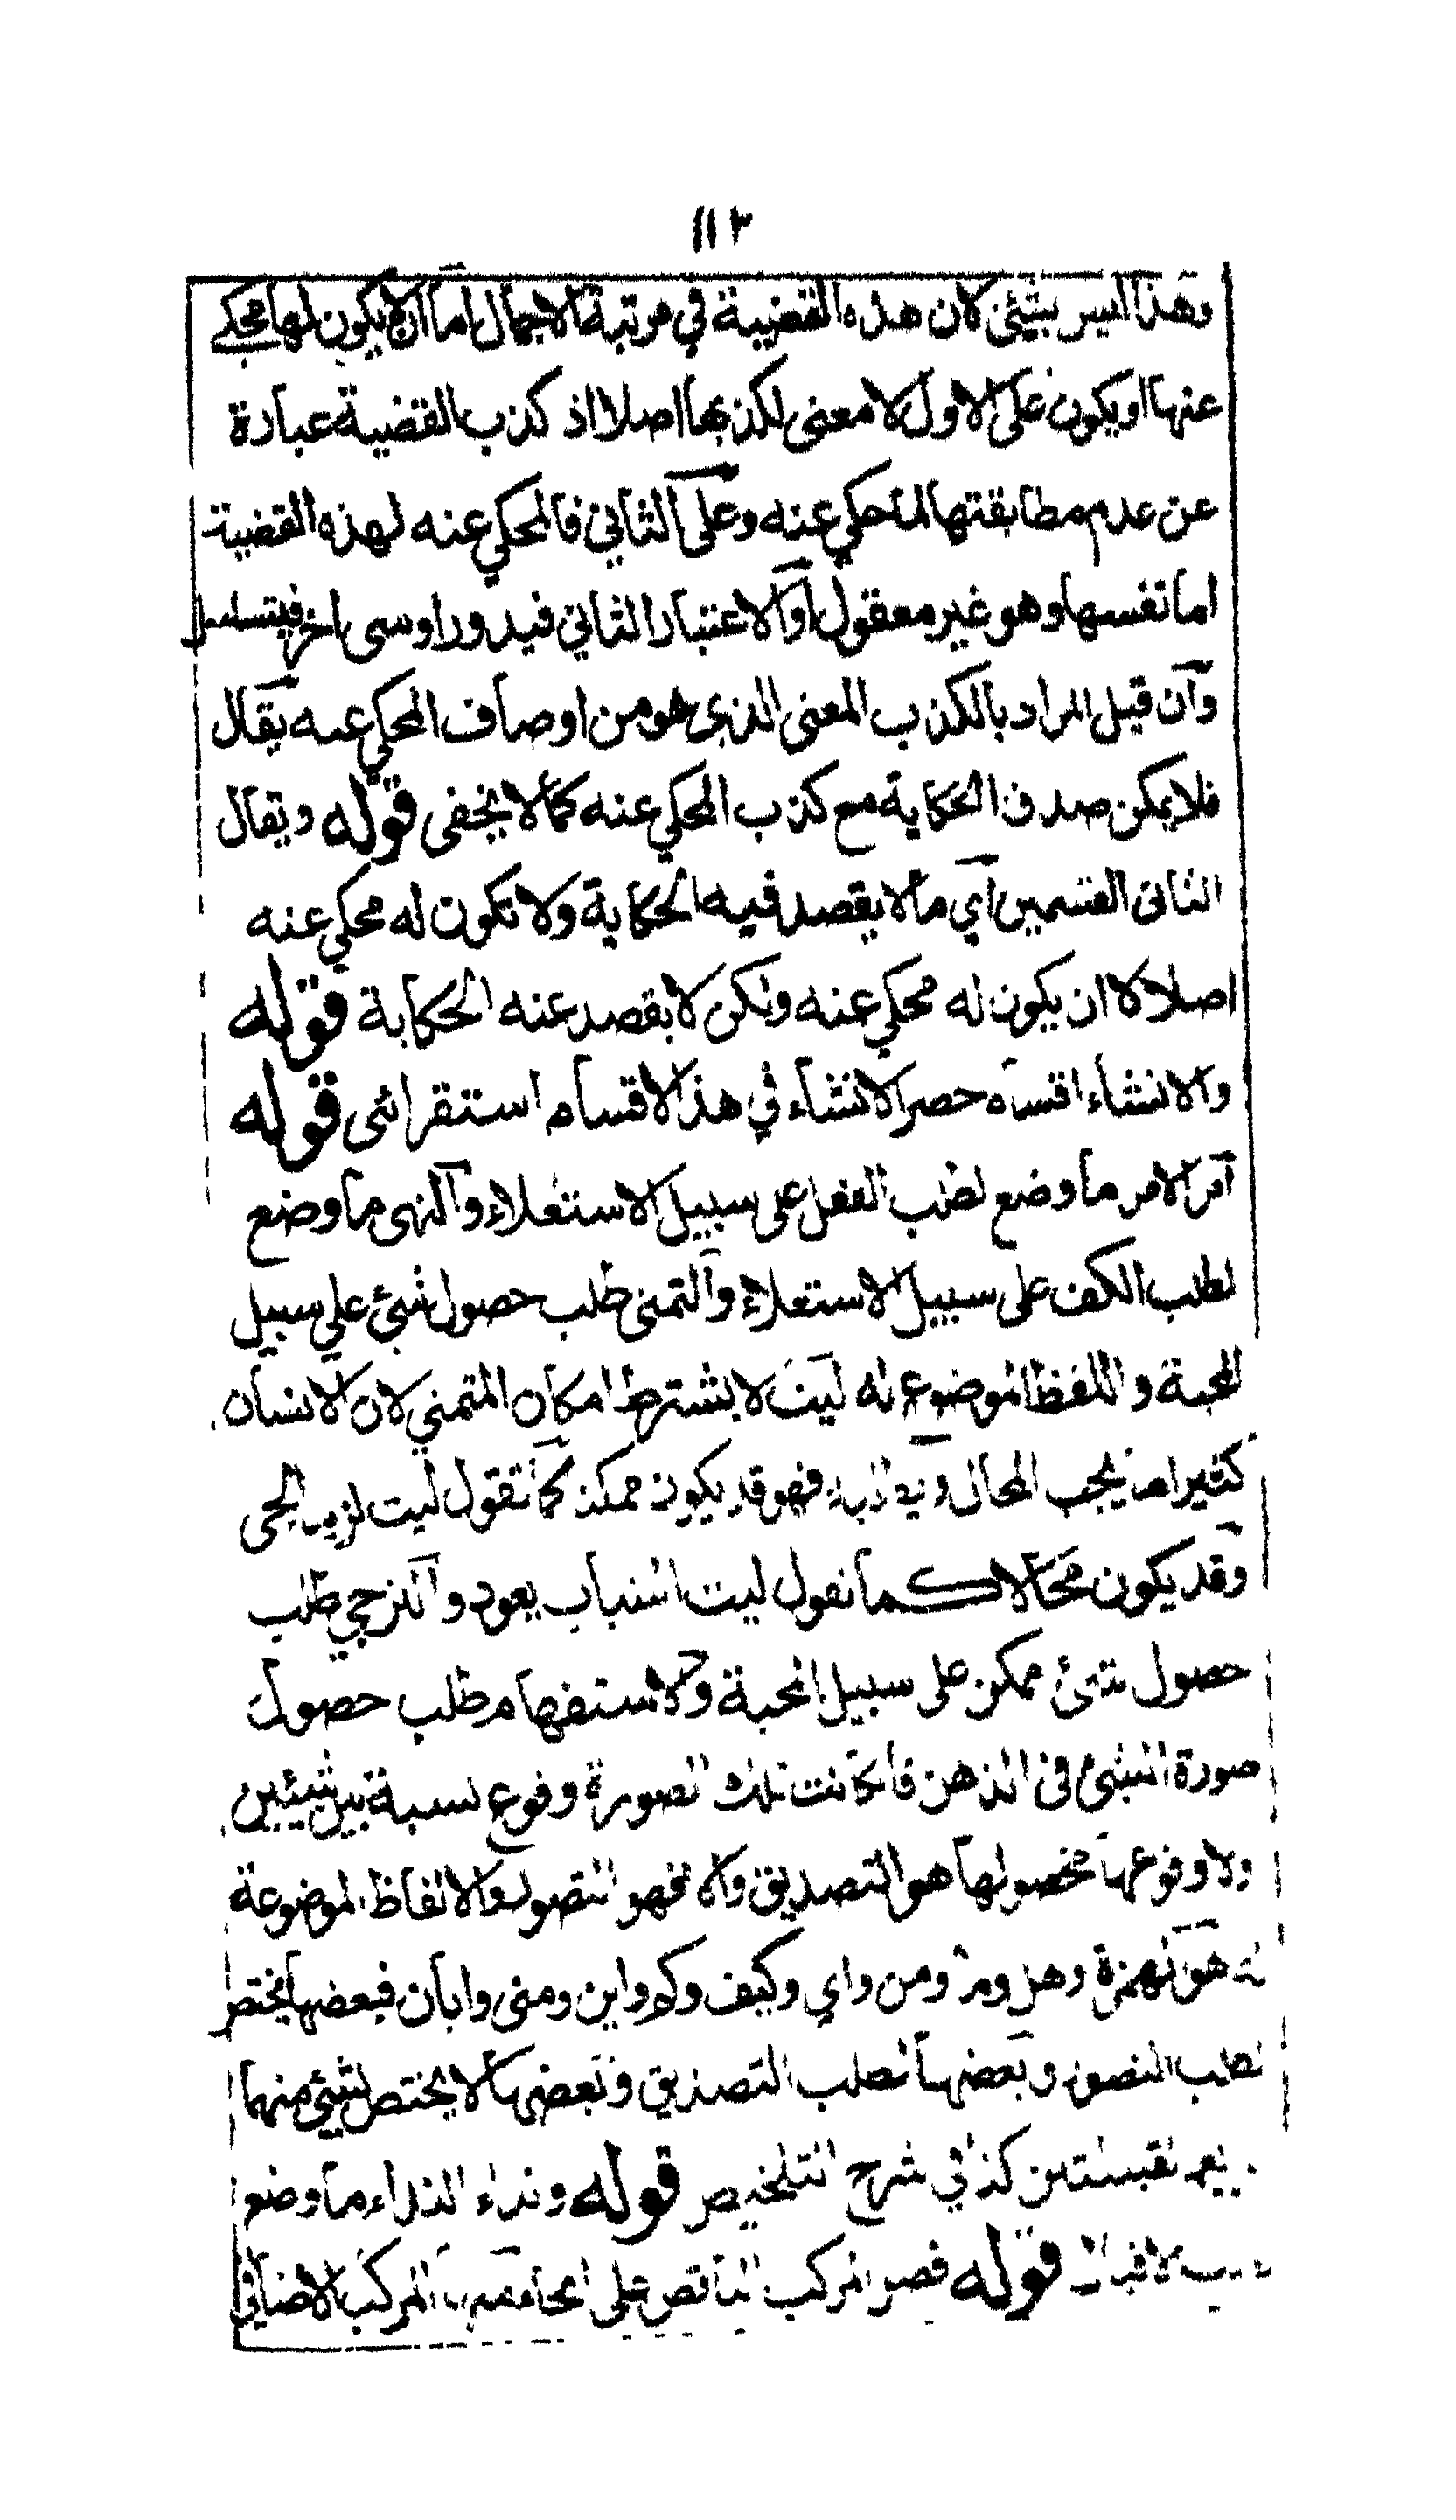 ١١٢
وهذا ليس بشئ لان هذه القضية في مرتبة الاجمال اما ان لا يكون لها محكي
عنها او يكون على الاول لا معنى لكذبها اصلا اذ كذب القضية عبارة
عن عدم مطابقتها لما حكي عنه وعلى الثاني فالمحكي عنه لهذه القضية
اما نفسها وهو غير معقول او الاعتبار الثاني فيدور او سى اخر فيتسلسل
وان قيل المراد بالكذب المعنى الذى هو من اوصاف المحكي عنه يقال
فلا يمكن صدق الحكاية مع كذب المحكي عنه كما لا يخفى قوله ويقال
الثانى القسمين اي ما لا يقصد فيه الحكاية ولا تكون له محكي عنه
اصلا لا ان يكون له محكي عنه ولكن لا يقصد عنه الحكاية قوله
والانشاء اقسام حصر الانشاء في هذ الاقسام استقرائى قوله
امر الامر ما وضع لطلب الفعل على سبيل الاستعلاء والنهى ما وضع
لطلب الكف على سبيل الاستعلاء والتمنى طلب حصول شئ علي سبيل
المحبة واللفظ الموضوع له ليت لا يشترط امكان المتمني لان الانسان
كثيرا ما يحب المحال فهو قد يكون ممكنا كما تقول ليت يجى
وقد يكون محالا كما تقول ليت الشباب يعود والترجي طلب
حصول شئ ممكن على سبيل المحبة والاستفهام طلب حصول
صورة الشئ في الذهن فان كانت تلك الصورة وقوع نسبة بين شيئين
ولا وقوعها فحصولها هو التصديق والا فهو التصور والالفاظ الموضوعة
له هو الهمزة وهل وما ومن واي وكيف وكم واين ومتى وايان فبعضها يختص
لطلب التصور وبعضها لطلب التصديق وبعضها لا يختص لشئ منهما
كذا في شرح التلخيص قوله ونداء النداء ما وضع
لطلب الاقبال قوله قصر المركب الناقص على المركب الاضافي